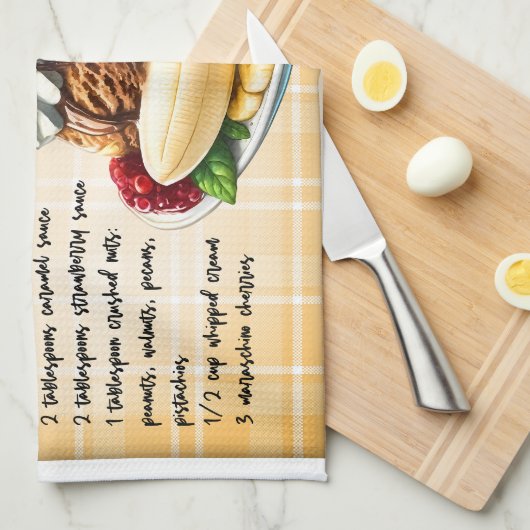 2 tablespoons caramel sauce
2 tablespoons strawberry sauce
1 tablespoon crushed nuts:
peanuts, walnuts, pecans,
pistachios
1/2 cup whipped cream
3 maraschino cherries